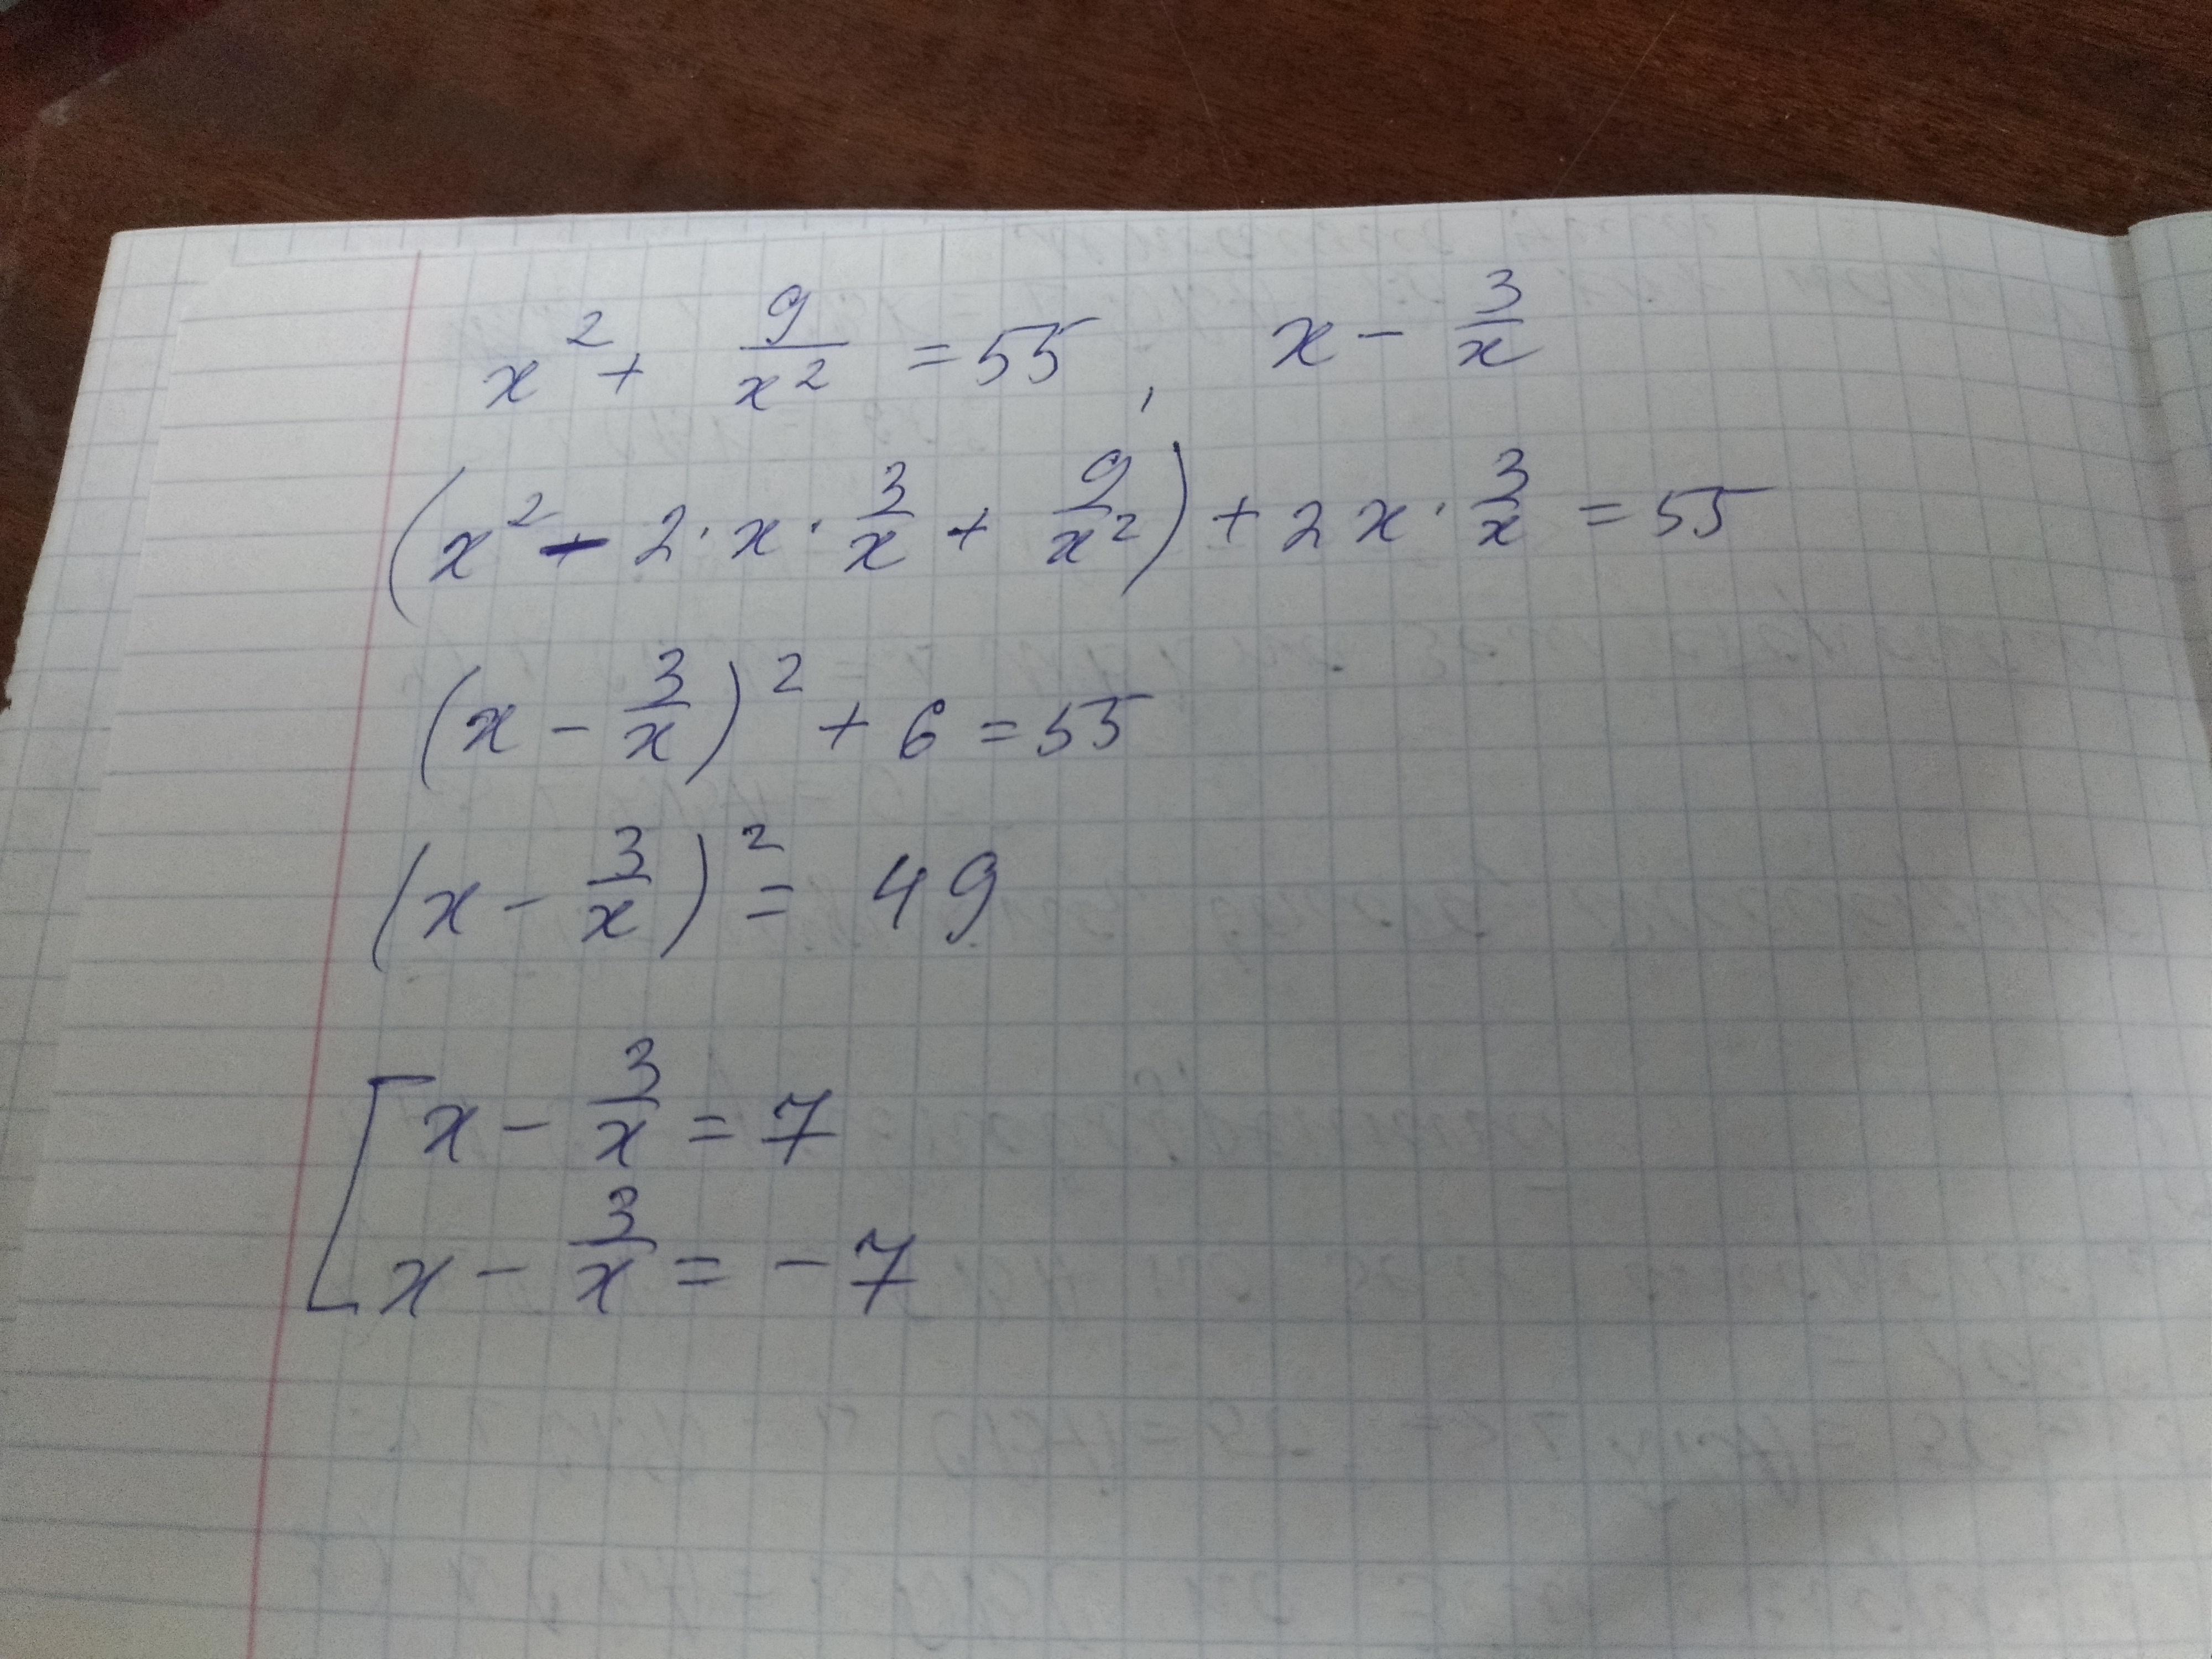 x² + 9/x² = 55, x - 3/x
(x² - 2·x·3/x + 9/x²) + 2x·3/x = 55
(x - 3/x)² + 6 = 55
(x - 3/x)² = 49
[x - 3/x = 7
x - 3/x = -7